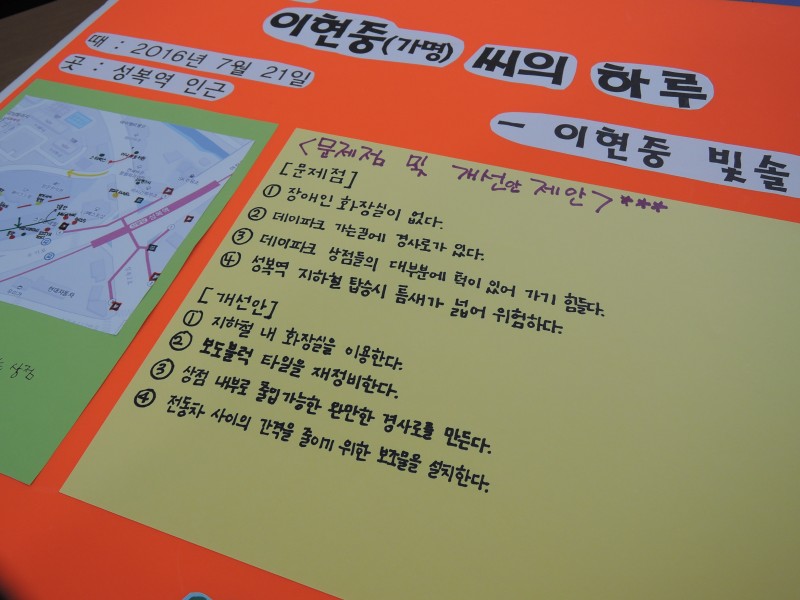 이현중(가명) 씨의 하루
때 : 2016년 7월 21일
곳 : 성복역 인근
- 이현중 빛솔
<문제점 및 개선안 제안> ***
[문제점]
① 장애인 화장실이 없다.
② 데이파크 가는길에 경사로가 있다.
③ 데이파크 상점들의 대부분에 턱이 있어 가기 힘들다.
④ 성복역 지하철 탑승시 틈새가 넓어 위험하다.
[개선안]
① 지하철 내 화장실을 이용한다.
② 보도블럭 타일을 재정비한다.
③ 상점 내부로 출입가능한 완만한 경사로를 만든다.
④ 전동차 사이의 간격을 줄이기 위한 보조물을 설치한다.
상점